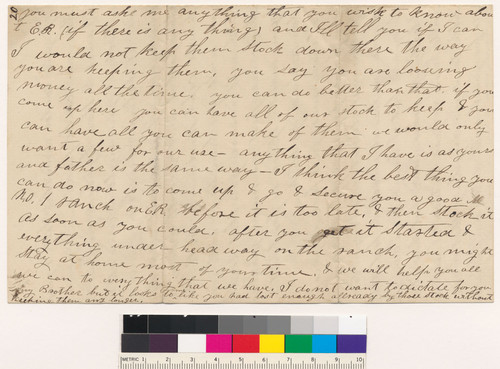 20 you must ask me anything that you wish to know abou
t E.R. (if there is any thing) and I'll tell you if I can
I would not keep them stock down there the way
you are keeping them, you say you are loosing
money all the time. you can do better than that. if you
come up here you can have all of our stock to keep & you
can have all you can make of them. we would only
want a few for our use - anything that I have is as yours
and father is the same way - I think the best thing you
can do now is to come up & go & secure you a good
No. 1 ranch on E.R. before it is too late, & then stock it
as soon as you could. after you get it started &
everything under headway on the ranch, you might
stay at home most of your time, & we will help you all
we can to everything that we have, I do not want to dictate for you
my Brother but it looks to me like you had lost enough allready by those stock without
keeping them any longer.
METRIC 1 2 3 4 5 6 7 8 9 10